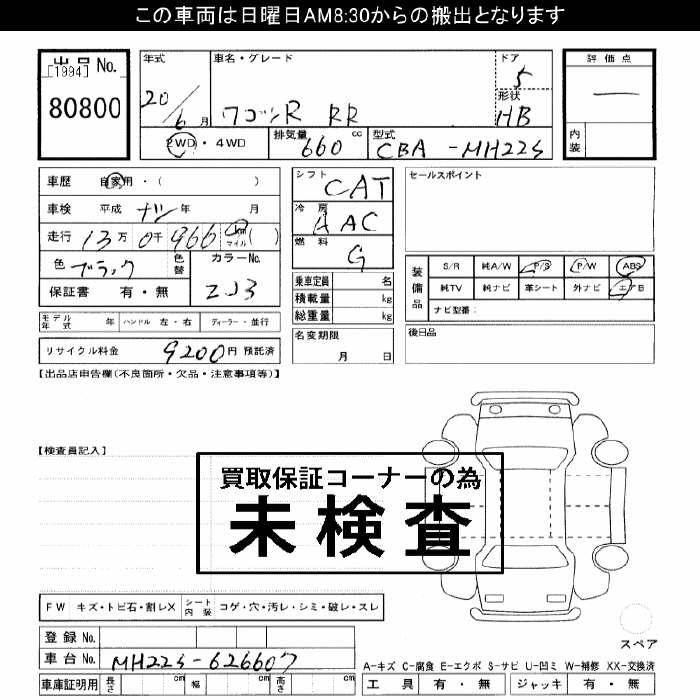 この車両は日曜日AM8:30からの搬出となります
出品 No.
[1994]
80800
年式 車名・グレード ドア 5 評価点
20/6月 ワゴンR RR 形状 HB
2WD・4WD 排気量 660 cc 型式 CBA-MH22S 内装
車歴 自家用・( )
車検 平成 ナシ 年 月
走行 13万 0千 966 km マイル ( )
色 ブラック 色替 カラーNo. ZJ3
保証書 有・無
モデル年式 年 ハンドル 左・右 ディーラー・並行
リサイクル料金 9200円 預託済
シフト CAT
冷房 AAC
燃料 G
乗車定員 名
積載量 kg
総重量 kg
名変期限 月 日
セールスポイント
装備品 S/R 純A/W P/S P/W ABS
純TV 純ナビ 革シート 外ナビ エアB
ナビ型番:
後日品
【出品店申告欄(不良箇所・欠品・注意事項等)】
【検査員記入】
買取保証コーナーの為
未検査
FW キズ・トビ石・割レX シート内装 コゲ・穴・汚レ・シミ・破レ・スレ
登録 No.
車台 No. MH22S-626607
車庫証明用 長さ cm 幅 cm 高さ cm
スペア
A-キズ C-腐食 E-エクボ S-サビ U-凹ミ W-補修 XX-交換済
工具 有・無 ジャッキ 有・無